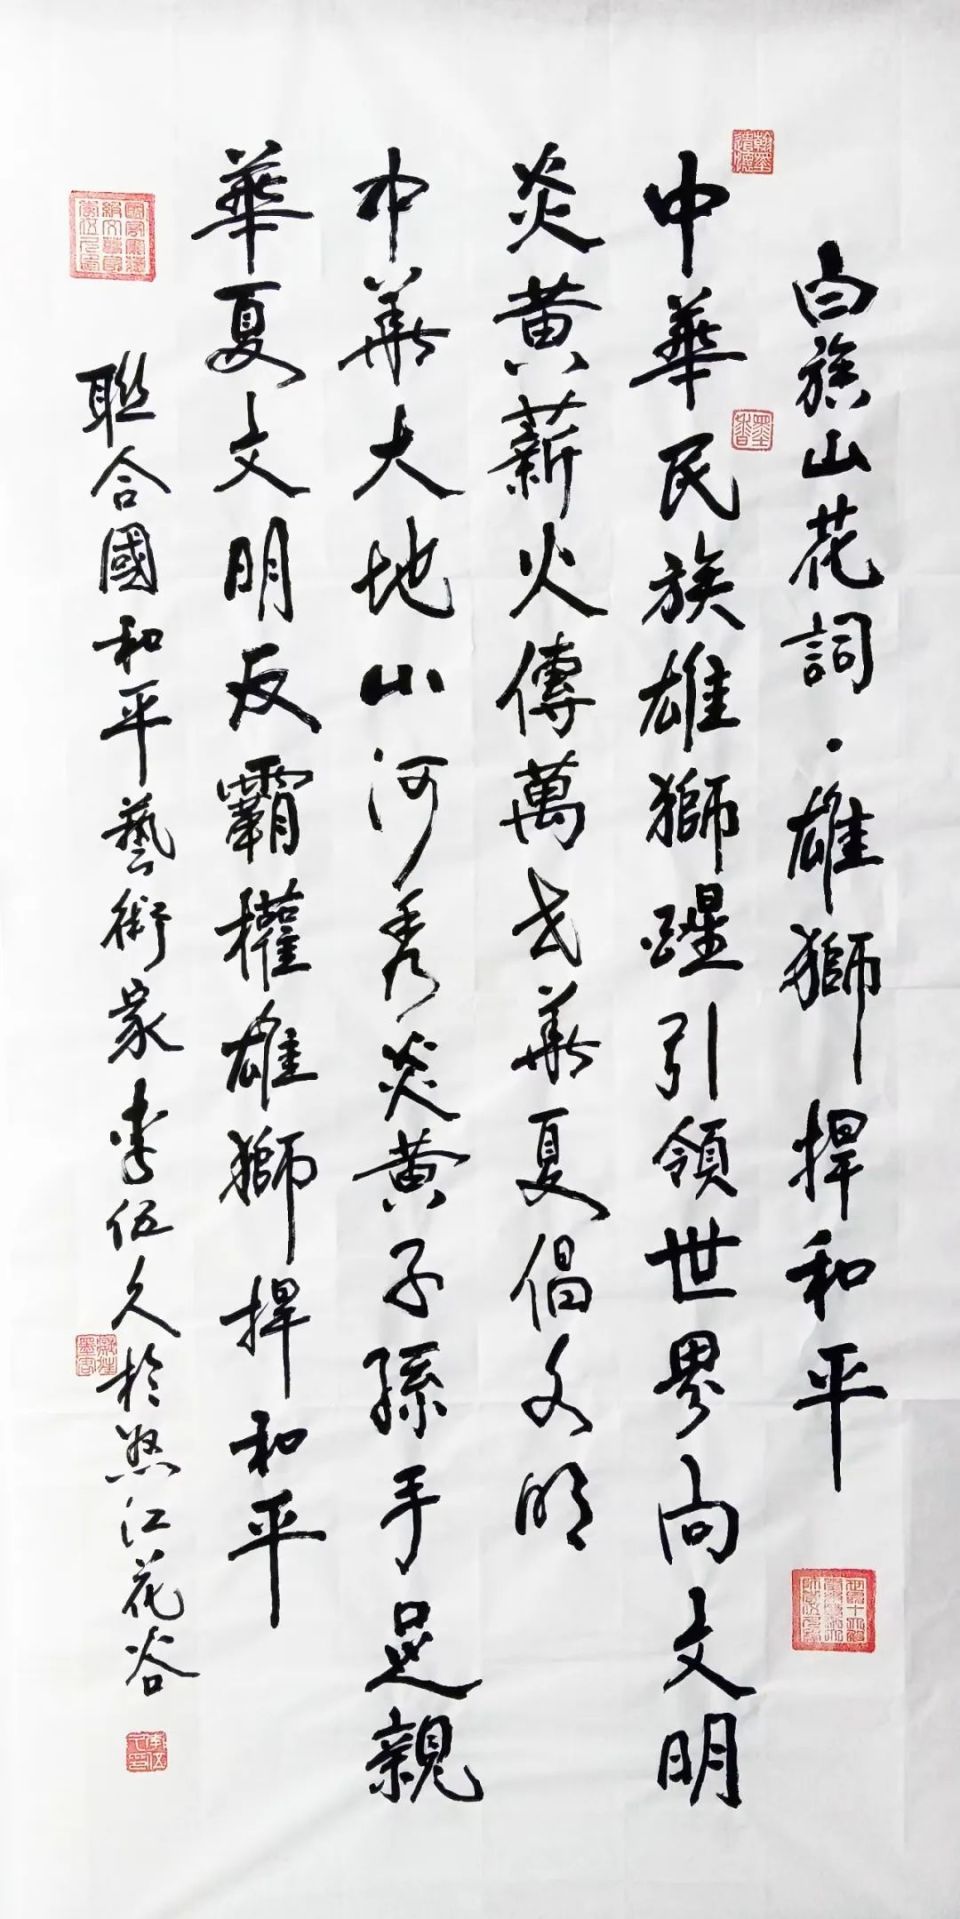 白族山花詞·雄獅捍和平
中華民族雄獅醒引領世界尚文明
炎黄薪火傳萬代華夏倡文明
中華大地山河秀炎黄子孫手足親
華夏文明反霸權雄獅捍和平
聯合國和平藝術家李伍久於怒江花谷
翰墨遺懷
墨香